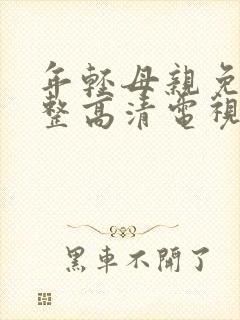 年輕母親免
整高清電視
黑車不開了